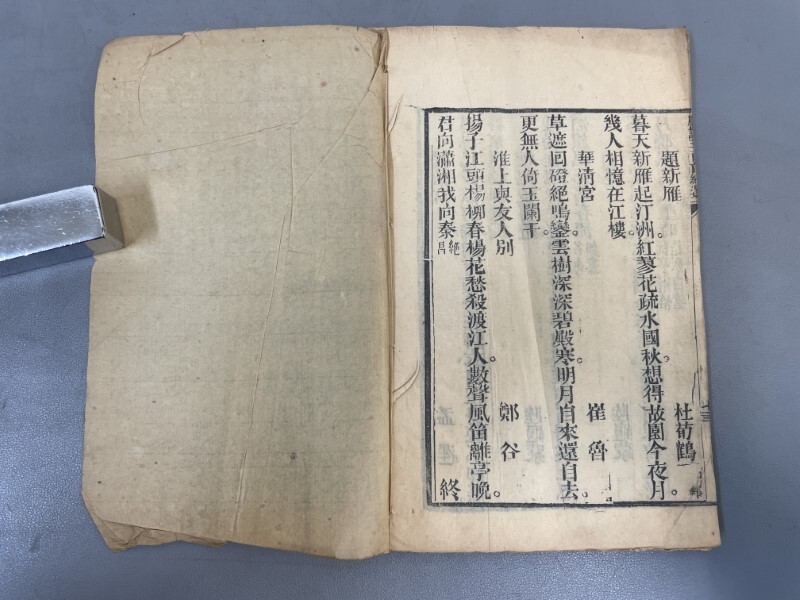 題新雁
杜荀鶴
暮天新雁起汀洲。紅蓼花疏水國秋。想得故園今夜月。
幾人相憶在江樓。
華清宮
崔魯
草遮回磴絕鳴鑾。雲樹深深碧殿寒。明月自來還自去。
更無人倚玉闌干。
淮上與友人別
鄭谷
揚子江頭楊柳春。楊花愁殺渡江人。數聲風笛離亭晚。
君向瀟湘我向秦
終